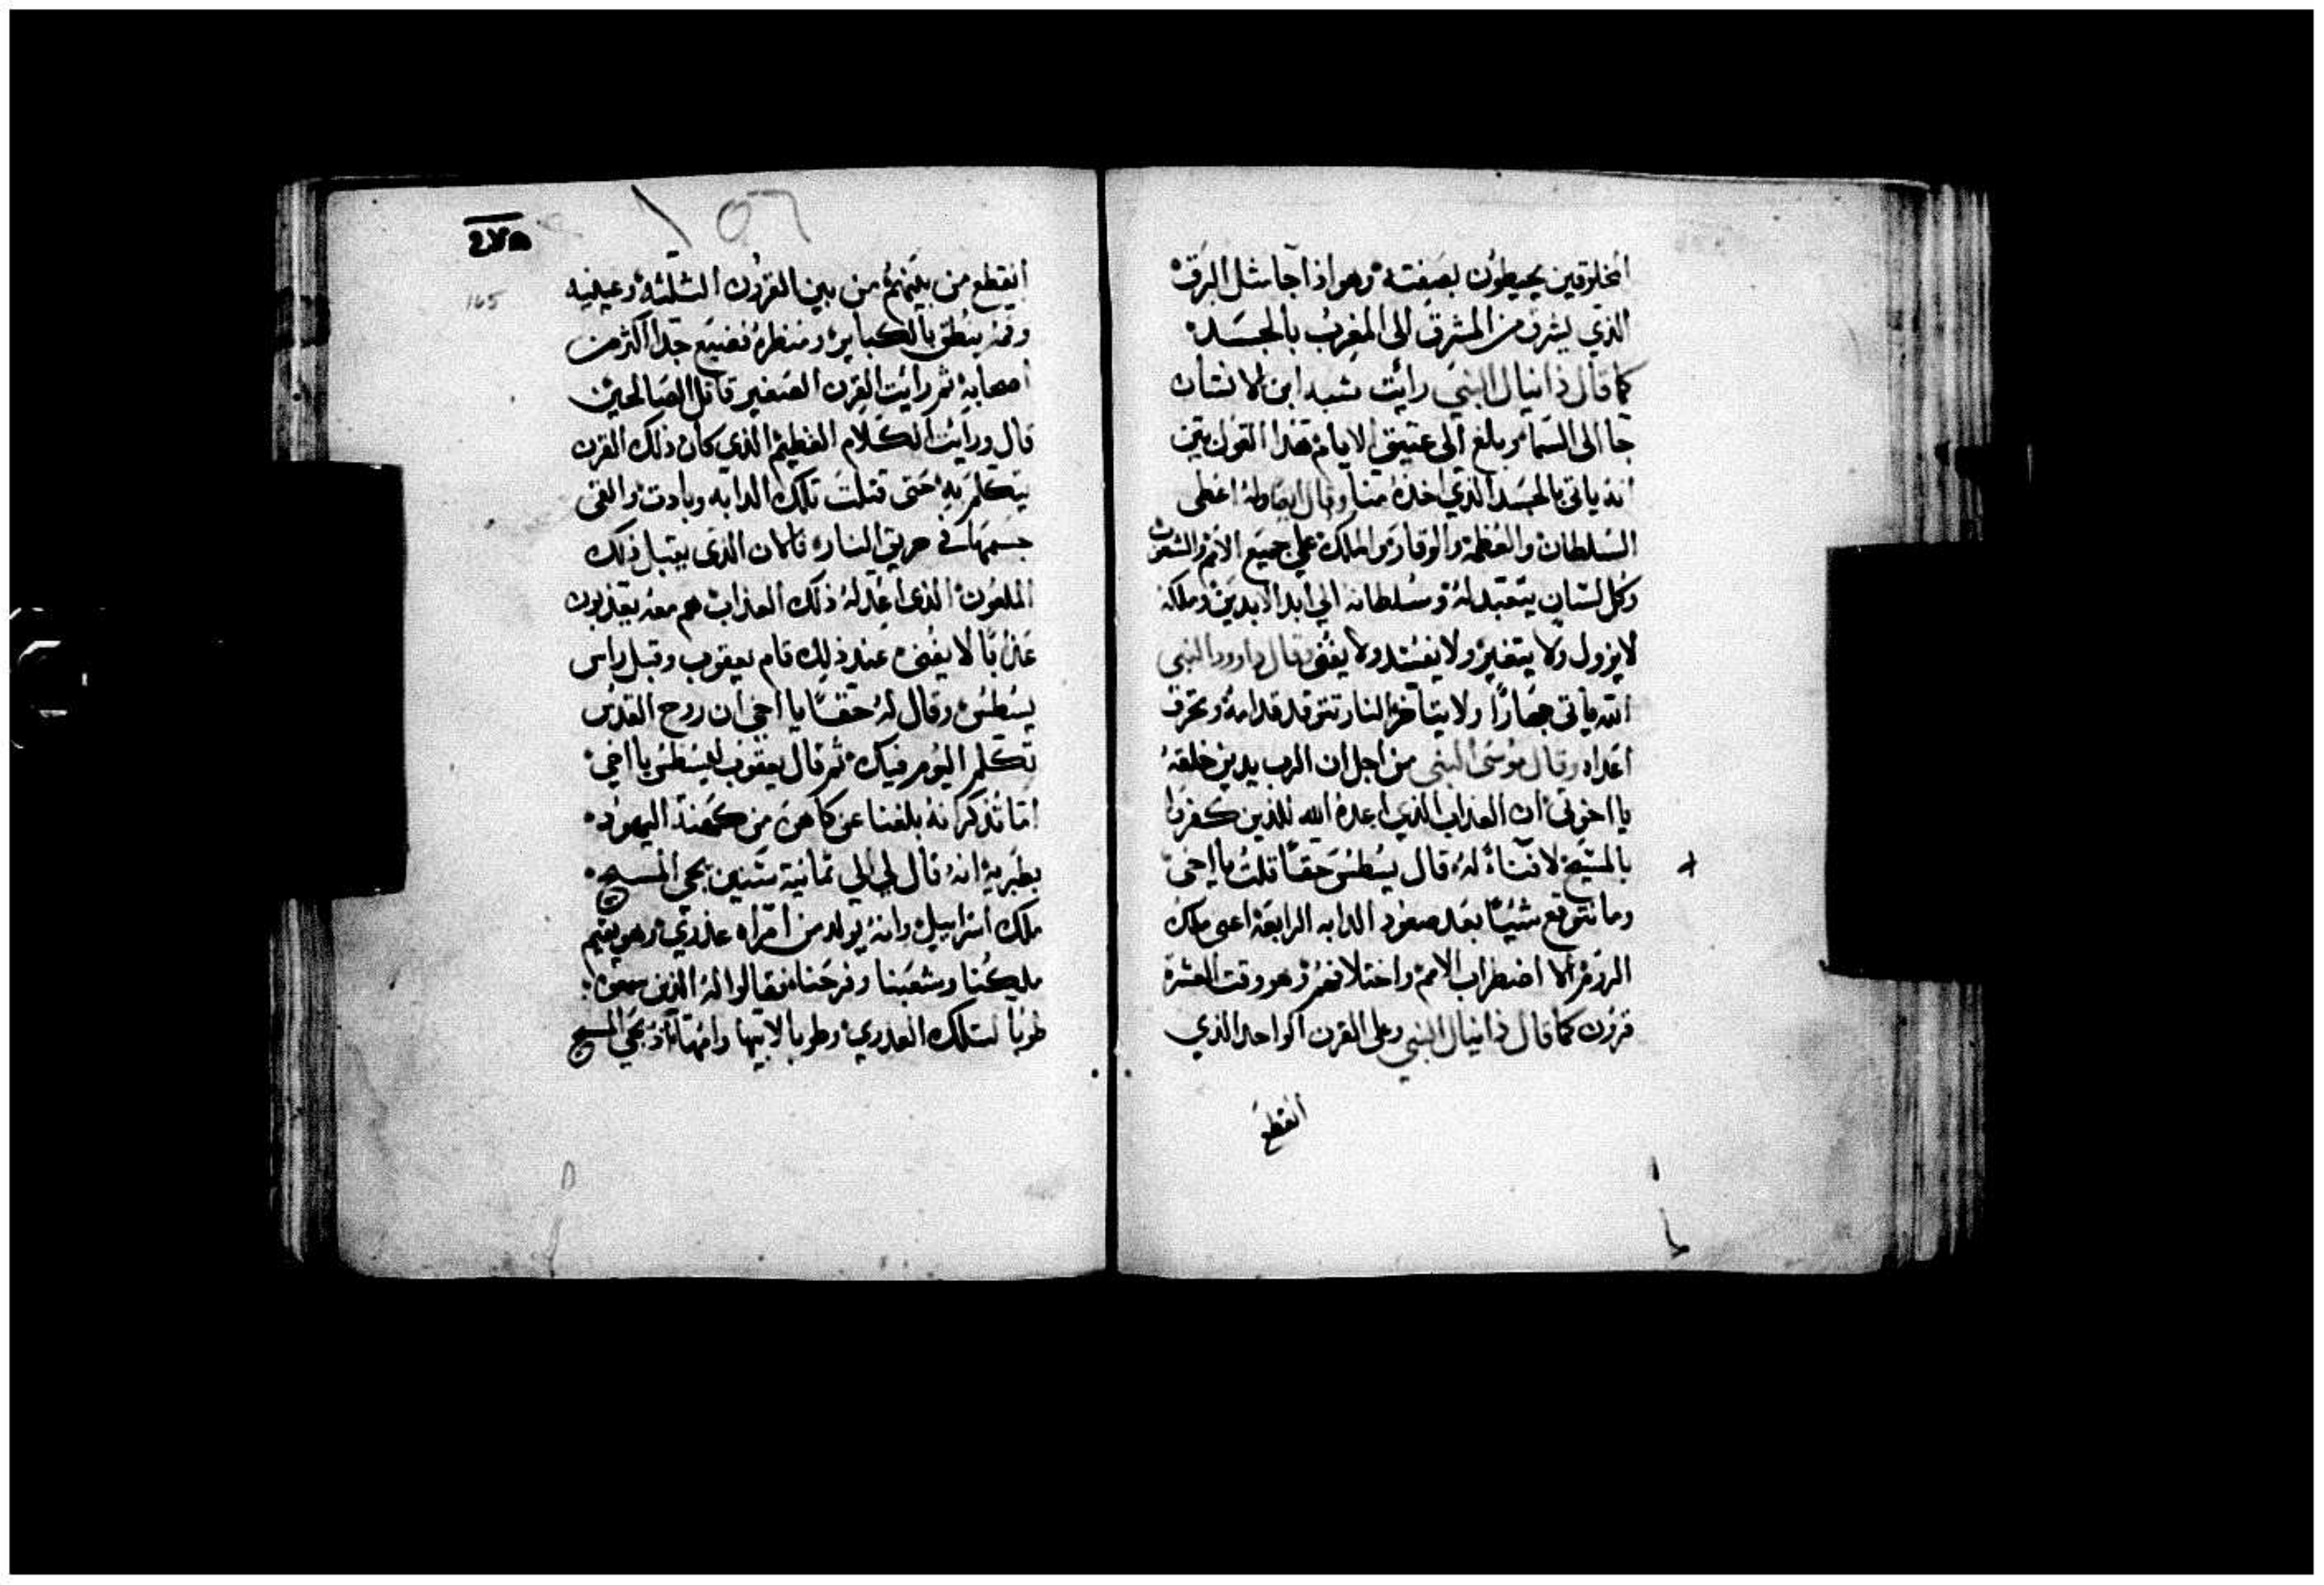 المخلوقين يحيطون بصفته وهو اذا جا مثل البرق
الذي يشرق من المشرق الى المغرب بالجسد
كما قال دانيال النبي رايت شبه ابن الانسان
جا الى السما وبلغ الى عتيق الايام هذا القول يتبين
انه ياتي بالجسد الذي اخذه منا وقال ايضا وله اعطى
السلطان والعظمة والوقار والملك على جميع الامم والشعوب
وكل لسان يتعبد له وسلطانه الي ابد الابدين وملكه
لا يزول ولا يتغير ولا يفسد ولا يفنى وقال داوود النبي
الله ياتي جهارًا ولا يتاخر النار تتوقد قدامه وتحرق
اعداه وقال موسى النبي من اجل ان الرب يدين خلقه
يا اخوتي ان العذاب الذي اعده الله للذين كفروا
بالمسيح لا فناء له قال يسطس حقًا قلت يا اخي
وما نتوقع شيئًا بعد صعود الدابه الرابعة اعني ملك
الروم الا اضطراب الامم واختلافهم وهو وقت العشرة
قرون كما قال دانيال النبي وعلى القرن الواحد الذي
انقطع
165
انقطع من بينهم من بين القرون الثلثة وعينيه
وفمه ينطق بالكباير ومنظره فضيع جدا اكثر من
اصحابه ثم رايت القرن الصغير قاتل الصالحين
قال ورايت الكلام العظيم الذي كان ذلك القرن
يتكلم به حتى قتلت تلك الدابه وبادت والقي
جسمها في حريق النار فكان الذي يقبل ذلك
الملعون الذي اعد له ذلك العذاب هم معه يعذبون
عذابًا لا يفنى عند ذلك قام يعقوب وقبل راس
يسطس وقال له حقًا يا اخي ان روح القدس
تكلم اليوم فيك ثم قال يعقوب ليسطس يا اخي
اما تذكر انه بلغنا عن كاهن من كهنة اليهود
بطبرية انه قال لي الي ثمانية سنين يجي المسيح
ملك اسراييل وانه يولد من امراه عذري وهو يقيم
ملكنا وشعبنا وفرحنا فقالوا له الذين سمعو
طوبا لتلك العدري وطوبا لابيها وامها اذ يجي المسيح